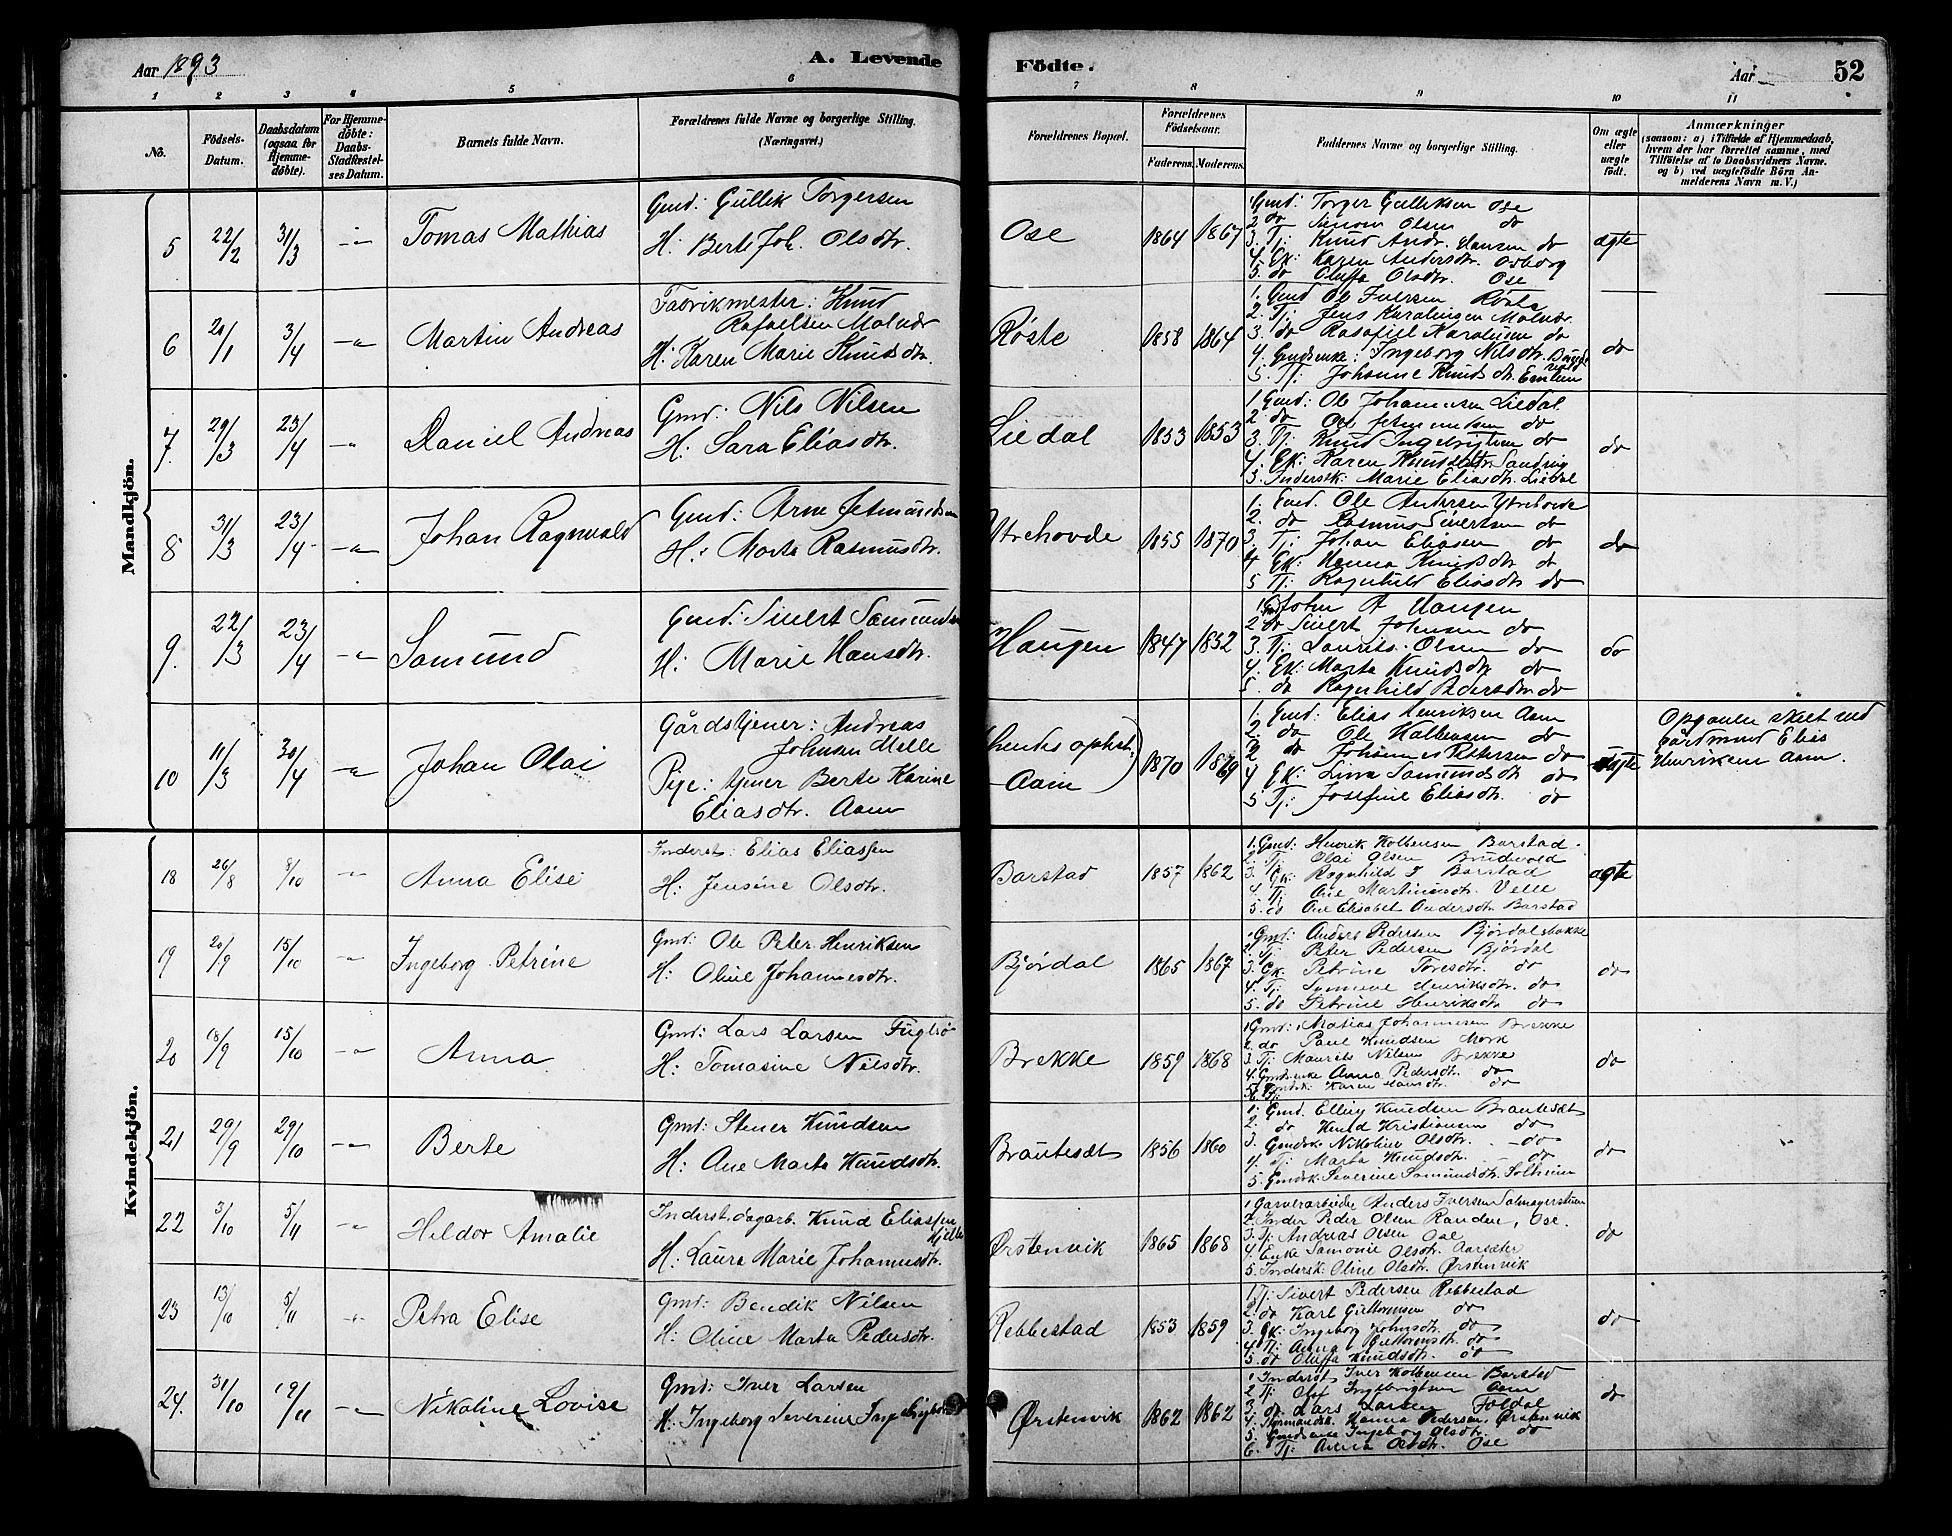 Aar 1893
A. Levende Födte.
Aar
52
1 2 3 4 5 6 7 8 9 10 11
No.
Födsels-Datum.
Daabsdatum (ogsaa for Hjemme-döbte).
For Hjemme-döbte: Daabs-Stadfæstel-ses Datum.
Barnets fulde Navn.
Forældrenes fulde Navne og borgerlige Stilling. (Næringsvei.)
Forældrenes Bopæl.
Forældrenes Födselsaar.
Faderens. Moderens.
Faddernes Navne og borgerlige Stilling.
Om ægte eller uægte födt.
Anmærkninger
(saasom: a) i Tilfælde af Hjemmedaab, hvem der har forrettet samme, med Tilföielse af to Daabsvidners Navne. og b) ved uægtefödte Börn Anmelderens Navn m. V.)
Mandkjön.
5 22/2 31/3 Tomas Mathias
Gmd: Gullik Torgersen
H: Berte Joh. Olsdtr.
Ose 1864 1867
1 Gmd: Torger Gulliksen Ose
2 do Simon Olsen do
3. Tj: Knud Andr. Hansen do
4. Gk: Karen Andersdtr.
5. do Oluffa Olsdtr. Ose
ægte
6 20/1 3/4 Martin Andreas
Fabrikmester: Knud
Rafaelsen Molvær
H: Karen Marie Knudsdtr.
Röste 1858 1864
1. Gmd Ole Iversen Röste
2. Tj: Jens Molvær
3. do do
4. Gmdsenke: Ingeborg Nilsdtr.
5. Tj: Johanne Knudsdtr.
do
7. 29/3 23/4 Daniel Andreas
Gmd: Nils Nilsen
H: Sara Eliasdtr.
Liedal 1853 1853
1 Gmd: Ole Johannesen Liedal
2 do Ole Jetmundsen do
3. Tj: Knud Ingebrigtsen do
4. Gk: Karen Knudsdtr. Sandvig
5. Inderstk: Marie Eliasdtr. Liedal
do
8 31/3 23/4 Johan Ragnvald
Gmd: Arne Jetmundsen
H: Marta Rasmusdtr.
Ytrehovde 1855 1870
1. Gmd. Ole Andersen Ytrehovde
2. do Rasmus Sivertsen do
3. Tj: Johan Eliasen do
4 Gk: Hanna Knudsdtr do
5 Tj: Ragnhild Eliasdtr do
do
9. 22/3 23/4 Samund
Gmd: Sivert Samundsen
H: Marie Hansdtr.
Haugen 1847 1852
1 Gmd John A Haugen
2 do Sivert Johnsen do
3. Tj: Laurits Olsen do
4. Gk: Marta Knudsdtr do
5 do Ragnhild Pedersdtr do
do
10 11/3 30/4 Johan Olai
Gårdstjener: Andreas
Johnsen Melle
Pige: tjener Berte Karine
Eliasdtr. Aam
(hendes opholdst.) Aam 1870 1869
1. Gmd: Elias Henriksen Aam
2. do Ole Kolbensen do
3 do Johannes Pedersen do
4 Gk: Lina Samundsdtr do
5 Tj: Josefine Eliasdtr. do
uægte
Opgaven skeet ved
Gårdmand Elias
Henriksen Aam.
Kvindekjön.
18 26/8 8/10 Anna Elise
Inderst: Elias Eliassen
H: Jensine Olsdtr.
Barstad 1857 1862
1. Gmd: Henrik Kolbensen Barstad.
2. Tj: Olai Olsen Brudevold
3. Gk: Ragnhild J Barstad
4 Tj: Ane Martinusdtr. Velle
5. do Ane Elisabet Andersdtr. Barstad
ægte
19 20/9 15/10 Ingeborg Petrine
Gmd: Ole Peter Henriksen
H: Oline Johannesdtr.
Bjørdal 1865 1867
1 Gmd: Anders Pedersen Björdalsbakke
2. Tj: Peter Pedersen Björdal
3. Gk: Petrine Toresdtr. do
4. Tj: Synneve Henriksdtr. do
5. do Petrine Henriksdtr. do
do
20 18/9 15/10 Anna
Gmd: Lars Larsen Fuglsö
H: Tomasine Nilsdtr.
Brekke 1859 1868
1 Gmd: Matias Johannesen Brekke
2. do Paul Knudsen Mork
3. Tj: Maurits Nilsen Brekke
4. Gmdsenke Anna Pedersdtr. do
5. Karen Hansdtr. do
do
21 29/9 29/10 Berte
Gmd: Stener Knudsen
H: Ane Marta Knudsdtr.
Brautesæt 1856 1860
1. Gmd. Elling Knudsen Brautesæt
2. do Knud Kristiansen do
3. Gmdsk Nikoline Olsdtr. do
4. Tj: Marta Knudsdtr. do
5. Gmdsk: Severine Samundsdtr. Solheim
do
22 3/10 5/11 Heldor Amalie
Inderst. dagarb. Knud Eliassen Hjelle
H: Laura Marie Johannesdtr.
Ørstenvik 1865 1868
1 Garverarbeider Anders Iversen
2. Inder Peder Olsen Randen, Ose.
3. Tj: Andreas Olsen Ose
4. Enke Samonie Olsdtr. Aarsæter
5. Inderstk: Oline Olsdtr. Ørstenvik
do
23 13/10 5/11 Petra Elise
Gmd: Bendik Nilsen
H: Oline Marta Pedersdtr.
Rebbestad 1853 1859
1 Tj: Sivert Pedersen Rebbestad
2. do Karl Guttormsen do
3. Gk: Ingeborg Johnsdtr. do
4 Tj: Anna Guttormsdtr. do
5. do Oluffa Knudsdtr. do
do
24. 31/10 19/11 Nikoline Lovise
Gmd: Iver Larsen
H: Ingeborg Severine Ingebrigtsdtr.
Ørstenvik 1862 1862
1 Inderst Iver Kolbensen Barstad
2 Tj: Olaf Ingebrigtsen Aam
3. do Lars Larsen Foldal
4. Hanna Pedersen, Ørstenvik
5. Gmdsenke Ingeborg Olsdtr. do
6. Tj: Anna Olsdtr. Ose
do